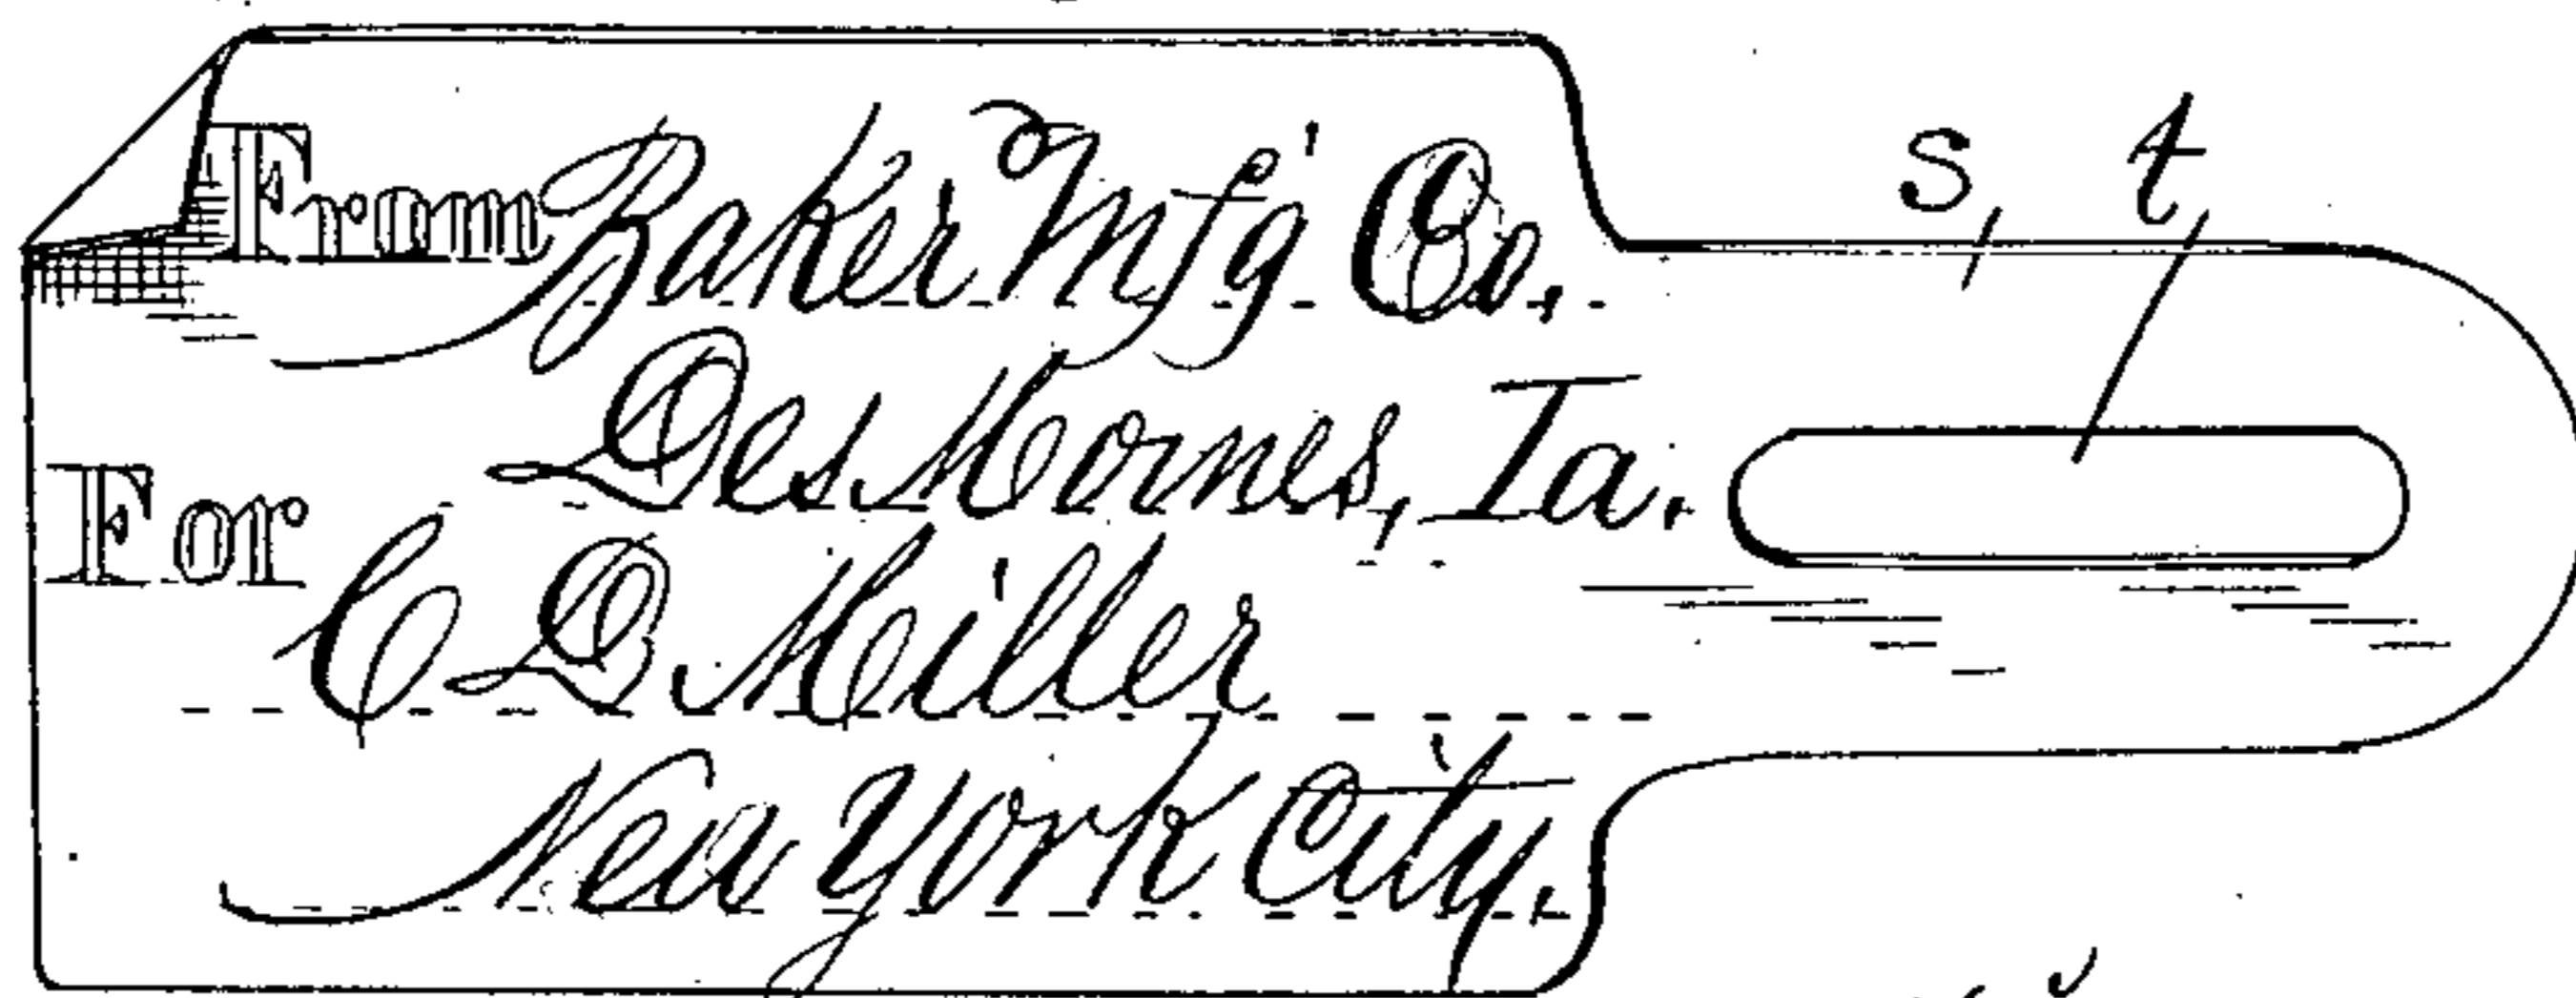 From Baker Mfg' Co.
s, t
Des Moines, Ia.
For
C D Miller
New York City.